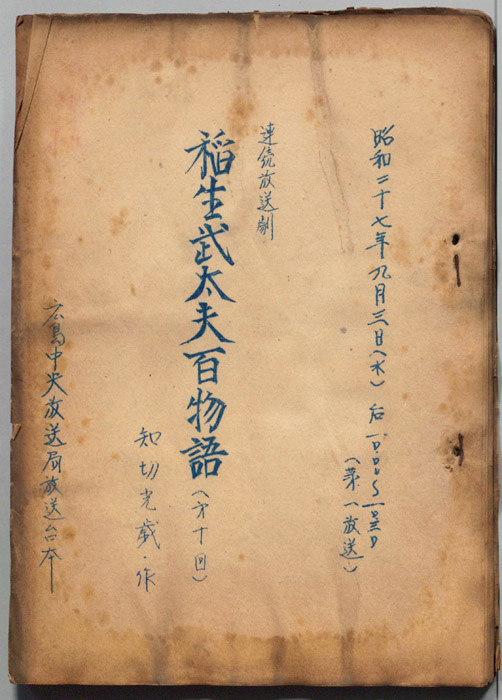 昭和二十七年九月三日(水) 后
(第一放送)
連続放送劇
稲生武太夫百物語(才十回)
知切光歳・作
広島中央放送局放送台本